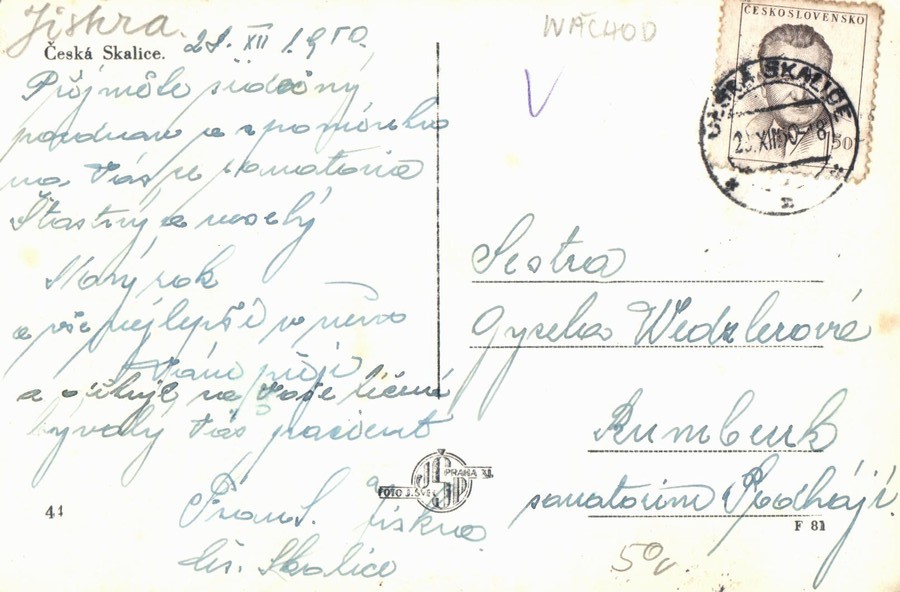 Jiskra.
Česká Skalice.
28. XII 1950.
Přijměte srdečný
pozdrav a vzpomínku
na Vás ze sanatoria
Štastný a veselý
Nový rok
a vše nejlepší v něm
Vám přeji
a na Vaše léčení
byvalý Váš pacient
Fran. Jiskra
Čes. Skalice
41
JSP
PRAHA XI.
FOTO J. ŠVEC
NÁCHOD
V
ČESKOSLOVENSKO
ČESKÁ SKALICE
XII 50-18
50
Sestra
Gyzela Wedzlerové
Rumburk
sanatorium Podhájí.
F 81
50v.